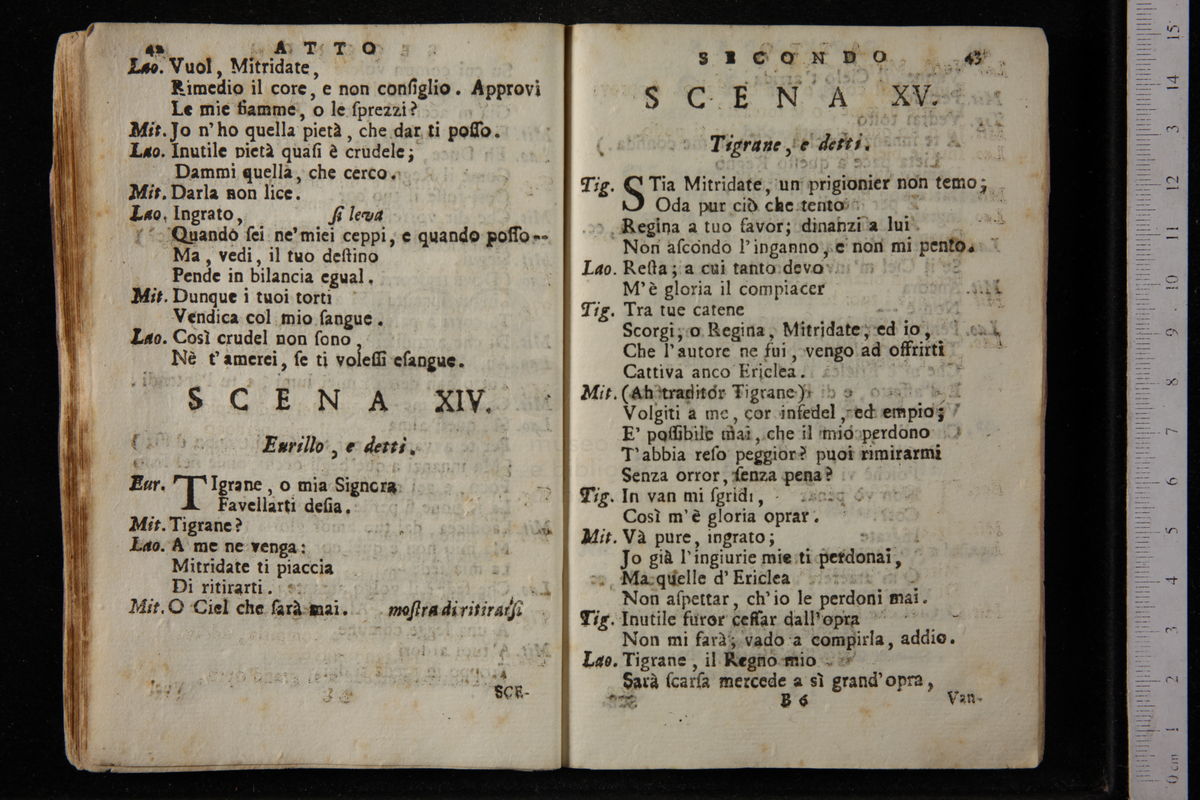 42 ATTO
Lao. Vuol, Mitridate,
Rimedio il core, e non conſiglio. Approvi
Le mie fiamme, o le ſprezzi?
Mit. Jo n'ho quella pietà, che dar ti poſſo.
Lao. Inutile pietà quaſi è crudele;
Dammi quella, che cerco.
Mit. Darla non lice.
Lao. Ingrato, ſi leva
Quando ſei ne'miei ceppi, e quando poſſo--
Ma, vedi, il tuo deſtino
Pende in bilancia egual.
Mit. Dunque i tuoi torti
Vendica col mio ſangue.
Lao. Così crudel non ſono,
Nè t'amerei, ſe ti voleſſi eſangue.
SCENA XIV.
Eurillo, e detti.
Eur. TIgrane, o mia Signora
Favellarti deſia.
Mit. Tigrane?
Lao. A me ne venga:
Mitridate ti piaccia
Di ritirarti.
Mit. O Ciel che ſarà mai. moſtra di ritirarſi
SCE-
SECONDO 43
SCENA XV.
Tigrane, e detti.
Tig. STia Mitridate, un prigionier non temo;
Oda pur ciò che tento
Regina a tuo favor; dinanzi a lui
Non aſcondo l'inganno, e non mi pento.
Lao. Reſta; a cui tanto devo
M'è gloria il compiacer
Tig. Tra tue catene
Scorgi, o Regina, Mitridate, ed io,
Che l'autore ne fui, vengo ad offrirti
Cattiva anco Ericlea.
Mit. (Ah traditor Tigrane)
Volgiti a me, cor infedel, ed empio;
E' poſſibile mai, che il mio perdono
T'abbia reſo peggior? puoi rimirarmi
Senza orror, ſenza pena?
Tig. In van mi ſgridi,
Così m'è gloria oprar.
Mit. Và pure, ingrato;
Jo già l'ingiurie mie ti perdonai,
Ma quelle d'Ericlea
Non aſpettar, ch'io le perdoni mai.
Tig. Inutile furor ceſſar dall'opra
Non mi farà; vado a compirla, addio.
Lao. Tigrane, il Regno mio
Sarà ſcarſa mercede a sì grand'opra,
B 6 Van-